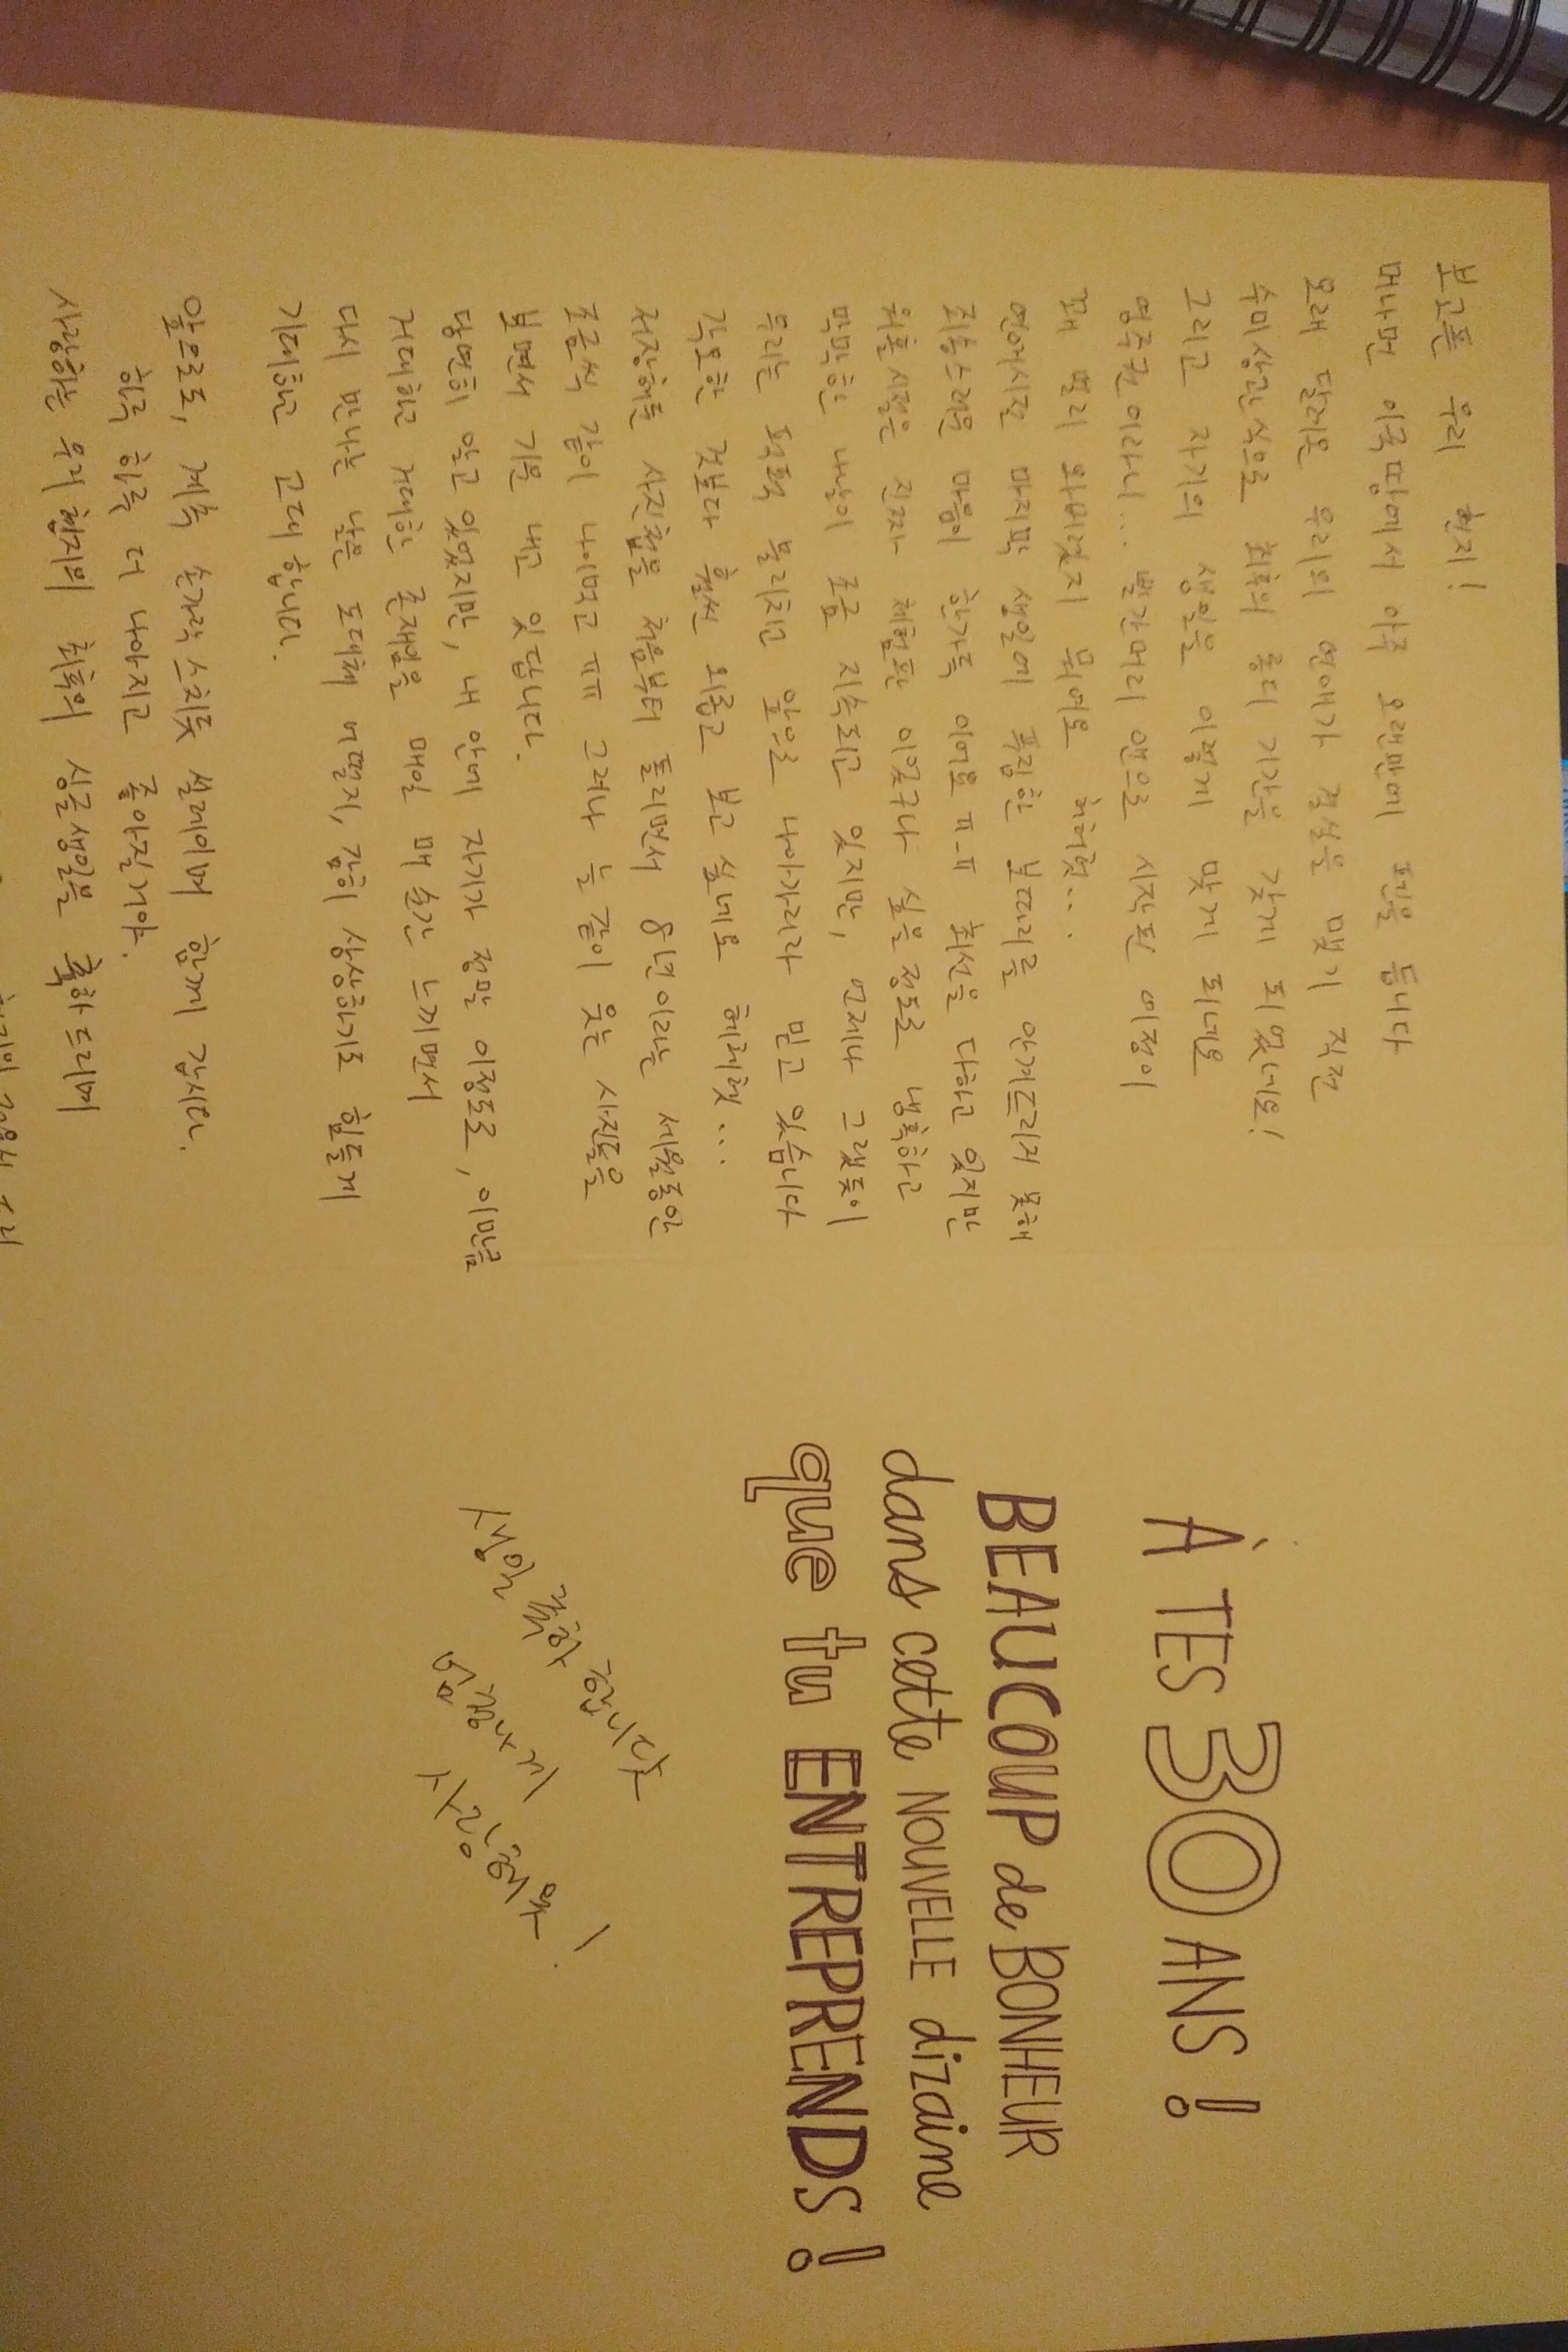 보고픈 우리 현지!
머나먼 이국땅에서 아주 오랜만에 펜을 듭니다
오래 달려온 우리의 연애가 결실을 맺기 직전
수미상관식으로 최후의 롱디 기간을 갖게 되었네요!
그리고 자기의 생일을 이렇게 맞게 되네요
영주권이라니... 빨간머리 앤으로 시작된 여정이
꽤 멀리 와버렸지 뭐에요 허허헛...
연애시절 마지막 생일에 푸짐한 보따리를 안겨드리지 못해
죄송스러운 마음이 한가득 이어요 ㅠ-ㅠ 최선을 다하고 있지만
워홀시절은 진짜 체험판 이었구나 싶을정도로 냉혹하고
막막한 나날이 조금 지속되고 있지만, 언제나 그랬듯이
우리는 퍽퍽 물리치고 앞으로 나아가리라 믿고 있습니다
각오한 것보다 훨씬 외롭고 보고 싶네요 헤헤헷...
저장해둔 사진첩을 처음부터 돌리면서 8년이라는 세월동안
조금씩 같이 나이먹고 ㅠㅠ 그러나 늘 같이 웃는 사진들을
보면서 기운 내고 있답니다.
당연히 알고 있었지만, 내 안에 자기가 정말 이정도로, 이만큼
거대하고 거대한 존재임을 매일 매 순간 느끼면서
다시 만나는 날은 도대체 어떨지, 감히 상상하기도 힘들게
기대하고 고대합니다.
앞으로도, 계속 손가락 스치듯 설레이며 함께 갑시다.
하루 하루 더 나아지고 좋아질거야.
사랑하는 우리 현지의 최후의 싱글생일을 축하드리며
À TES 30 ANS !
BEAUCOUP de BONHEUR
dans cette NOUVELLE dizaine
que tu ENTREPRENDS !
생일 축하 합니닷
엄청나게
사랑해옷!